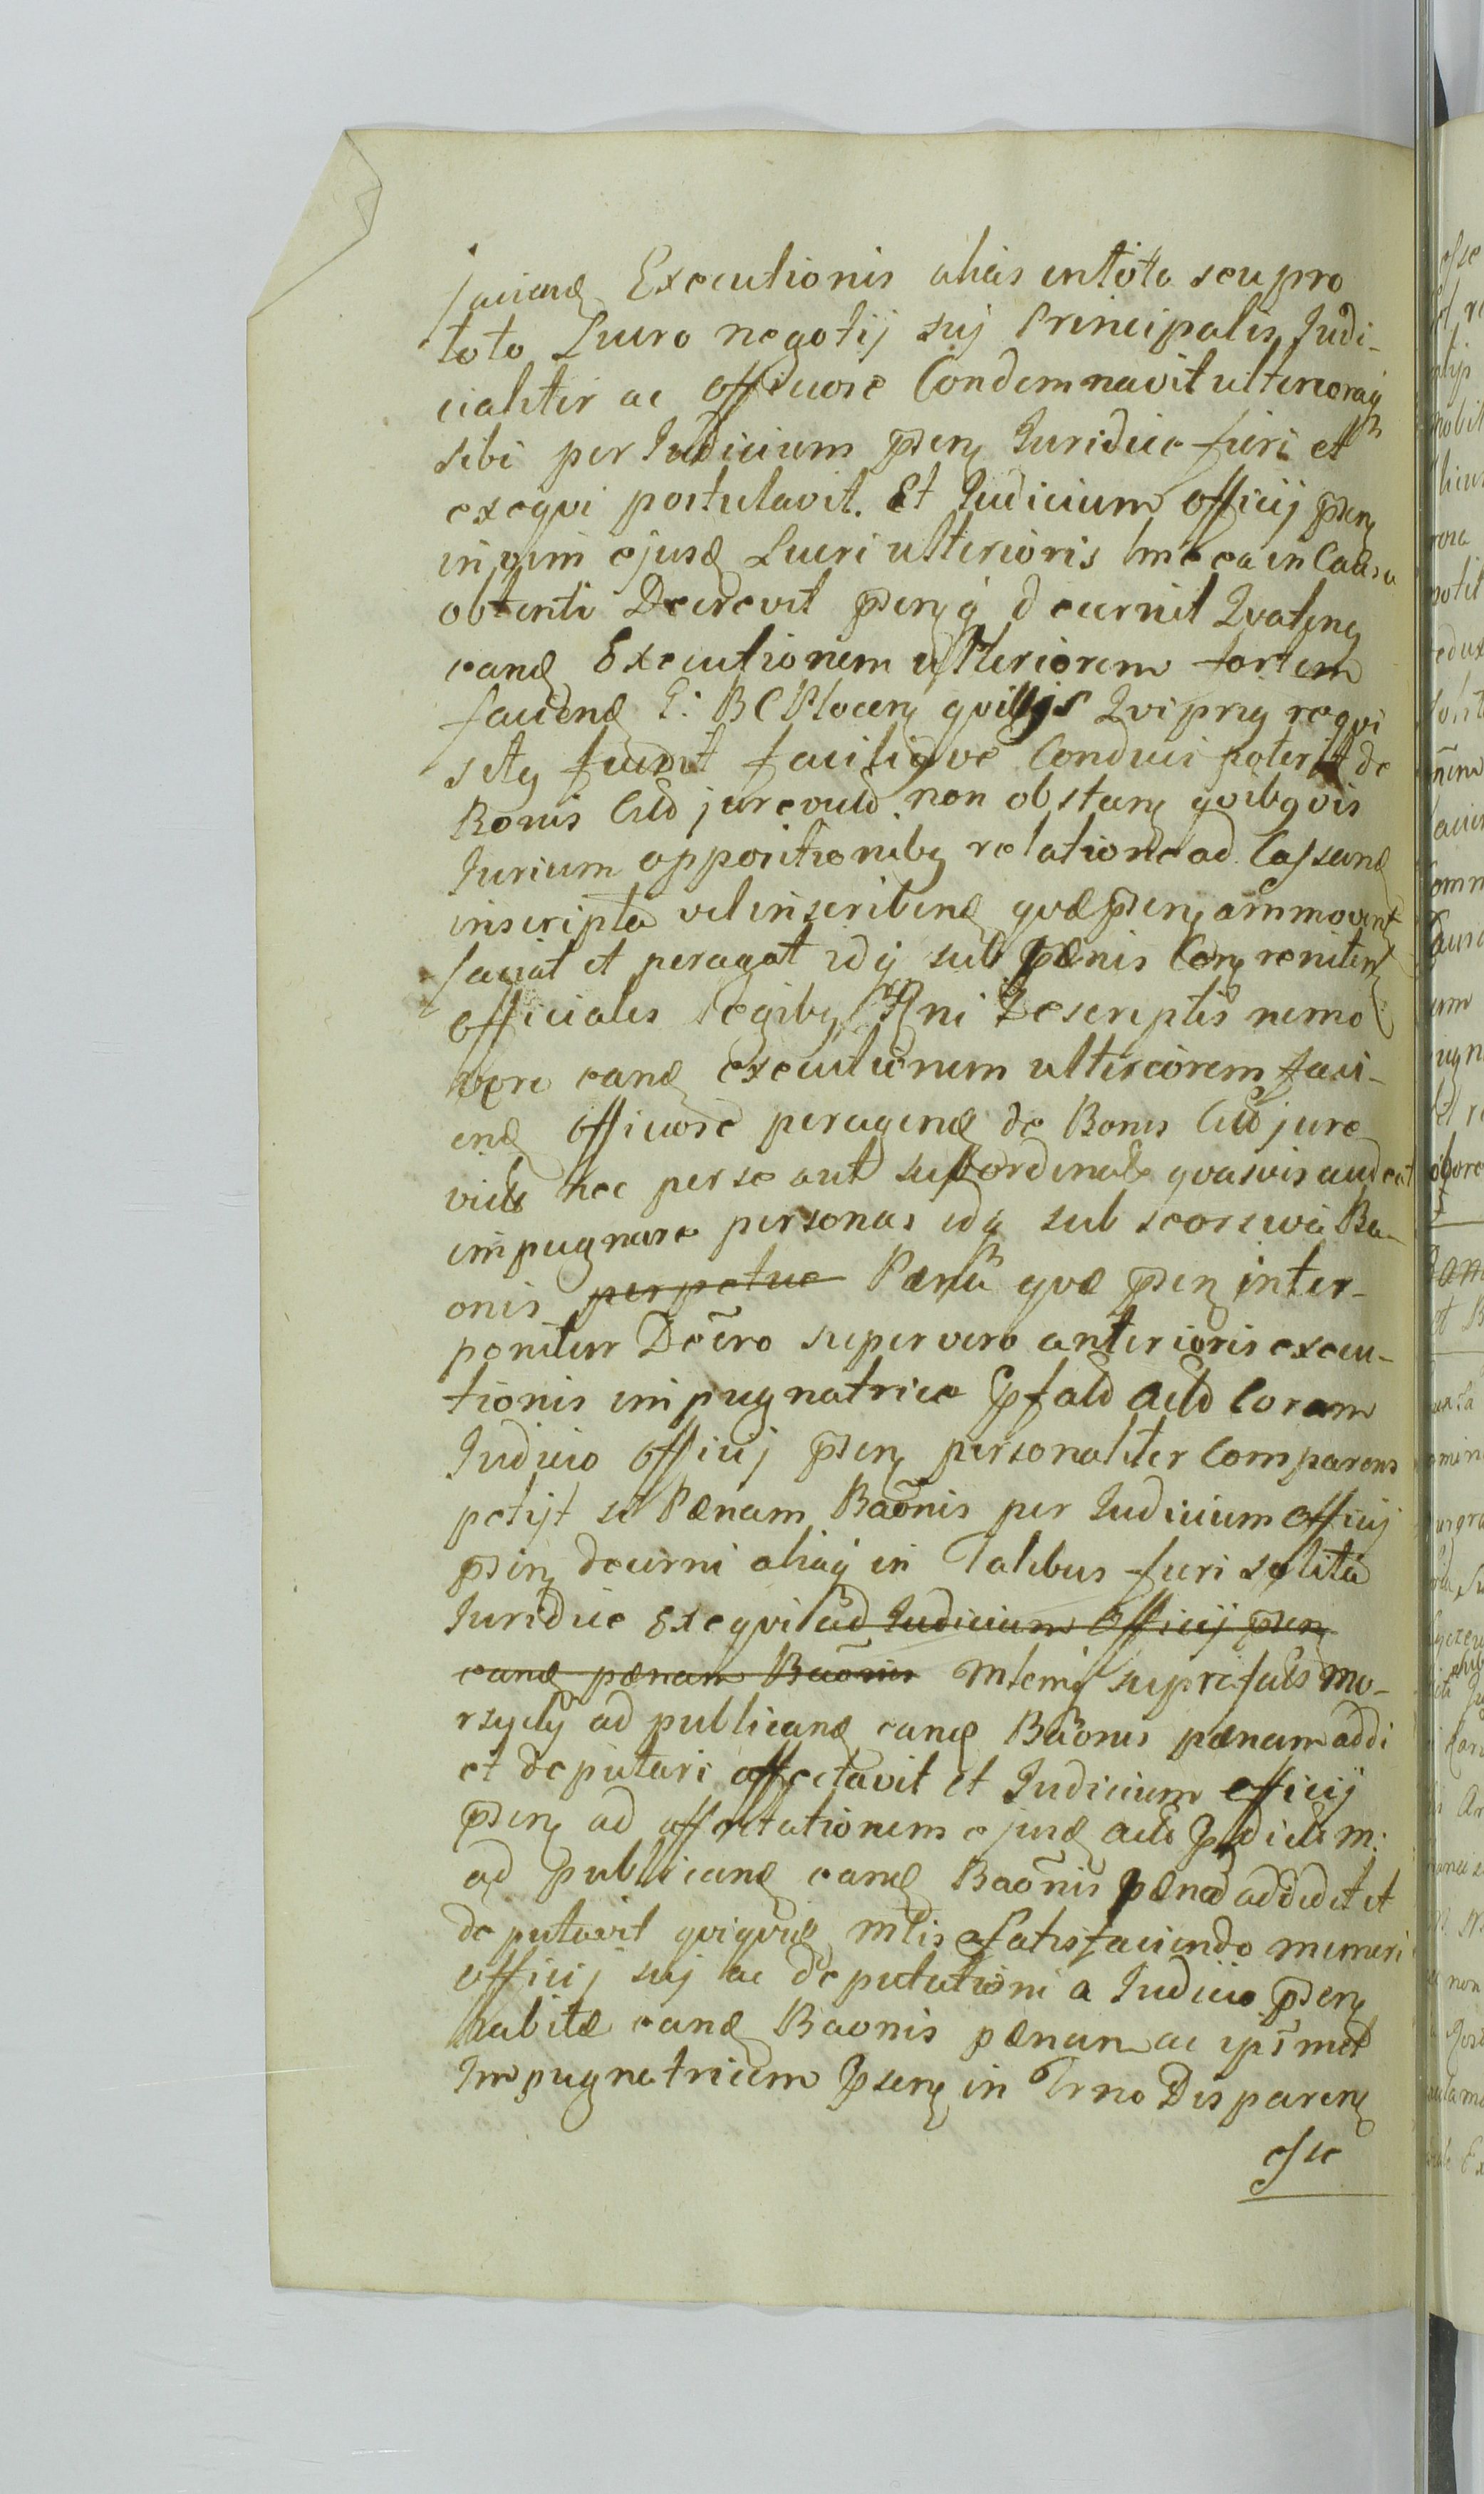 faciend Executionis alias in toto seu pro
toto Lucro negotij suj Principalis Judi-
cialiter ac officiose Condemnavit ulterioraq
sibi per Judicium psen Juridice fieri et
exeqvi postulavit. Et Judicium officij psen
in vim ejusd Lucri ulterioris in ea in Causa
obtenti Decrevit psenq decernit Qvateng
eand Executionem ulteriorem fortem
faciend G: B C Plocen qvilljs Qvi prig reqvi
sitg fuerit faciliqve Conduci poterit de
Bonis Citd jure vicld non obstan qvibgvis
Jurium oppositionibg relatione ad Cassand
inscripta vel inscribend qvæ psen ammovent
faciat et peragat idq sub pænis Con reniten
officiales Legibg Rni Descriptis nemo
vero eand executionem ulteriorem faci-
end officiose peragend de Bonis Citd jure
victs nec per se aut subordinats qvasvis audeat
impugnare personas idq sub seorsiva Ba-
onis perpetuæ Pæna qvæ psen inter-
ponitur Decro super vero anterioris execu-
tionis impugnatrice Ppfald Actd Coram
Judicio officij psen personaliter Comparens
petijt st Pænam Baonis per Judicium officij
psen decerni aliaq in Talibus fieri solita
Juridice Exeqvi ad Judicium Officij psen
eand pænam Baonis Mlemq suprefats Mo-
rsycky ad publicand eand Baonis pænam addi
et deputari affectavit et Judicium officij
psen ad affectationem ejusd Acts Pdictm:
ad publicand eand Baonis pænæ addidit et
deputavit qviqvid Mlis Satisfaciendo muneri
officij suj ac deputationi a Judicio psen
habitæ eand Baonis pænam ac ipsmet
Impugnatricem Psen in Trno Disparen
esse